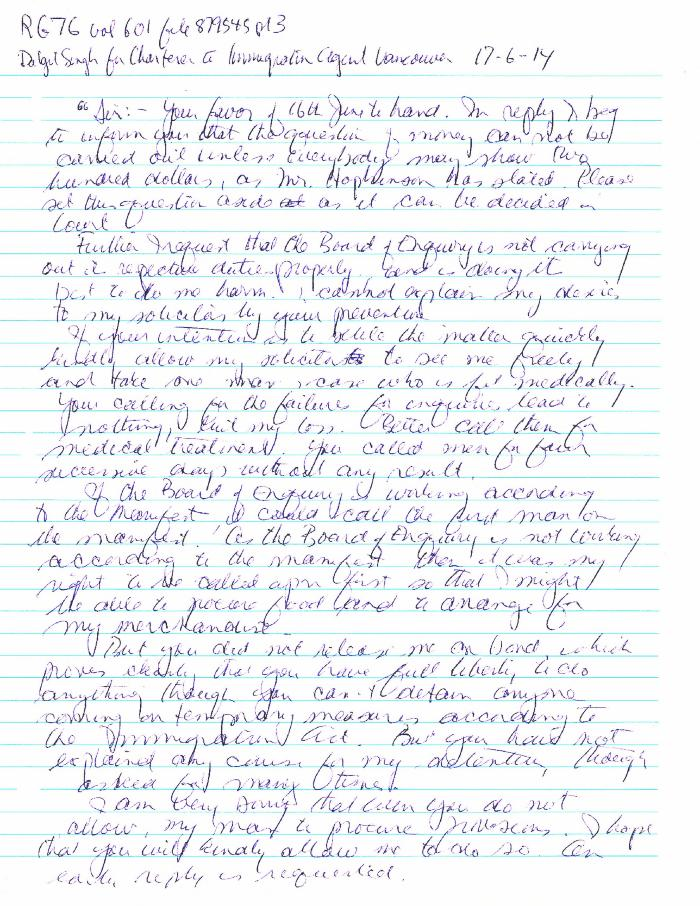 RG76 vol 601 file 879545 pt 3
Daljit Singh for Charterer to Immigration Agent Vancouver 17-6-14
"Sir:- Your favor of 16th June to hand. In reply I beg
to inform you that the question of money can not be
carried out unless everybody may show two
hundred dollars, as Mr. Hopkinson has stated. Please
set this question aside as it can be decided in
Court.
Further I request that the Board of Enquiry is not carrying
out it respective duties properly, and is doing it
best to do me harm. I cannot explain my desires
to my solicitors by your prevention.
If your intention is to settle the matter quickly
kindly allow my solicitors to see me freely
and take one man's case who is fit medically.
Your calling for the failures for enquiries lead to
nothing, but my loss. Better call them for
medical treatment. You called men for four
successive days without any result.
If the Board of Enquiry is working according
to the Manifest it could call the first man on
the manifest. As the Board of Enquiry is not working
according to the manifest then it was my
right to be called upn first so that I might
be able to procure food and to arrange for
my merchandise.
But you did not release me on bond, which
proves clearly that you have full liberty to do
anything though you can't detain anyone
coming on temporary measures according to
the Immigration Act. But you have not
explained any cause for my detention, though
asked for many times.
I am very sorry that even you do not
allow, my man to procure provisions. I hope
that you will kindly allow me to do so. An
early reply is requested.